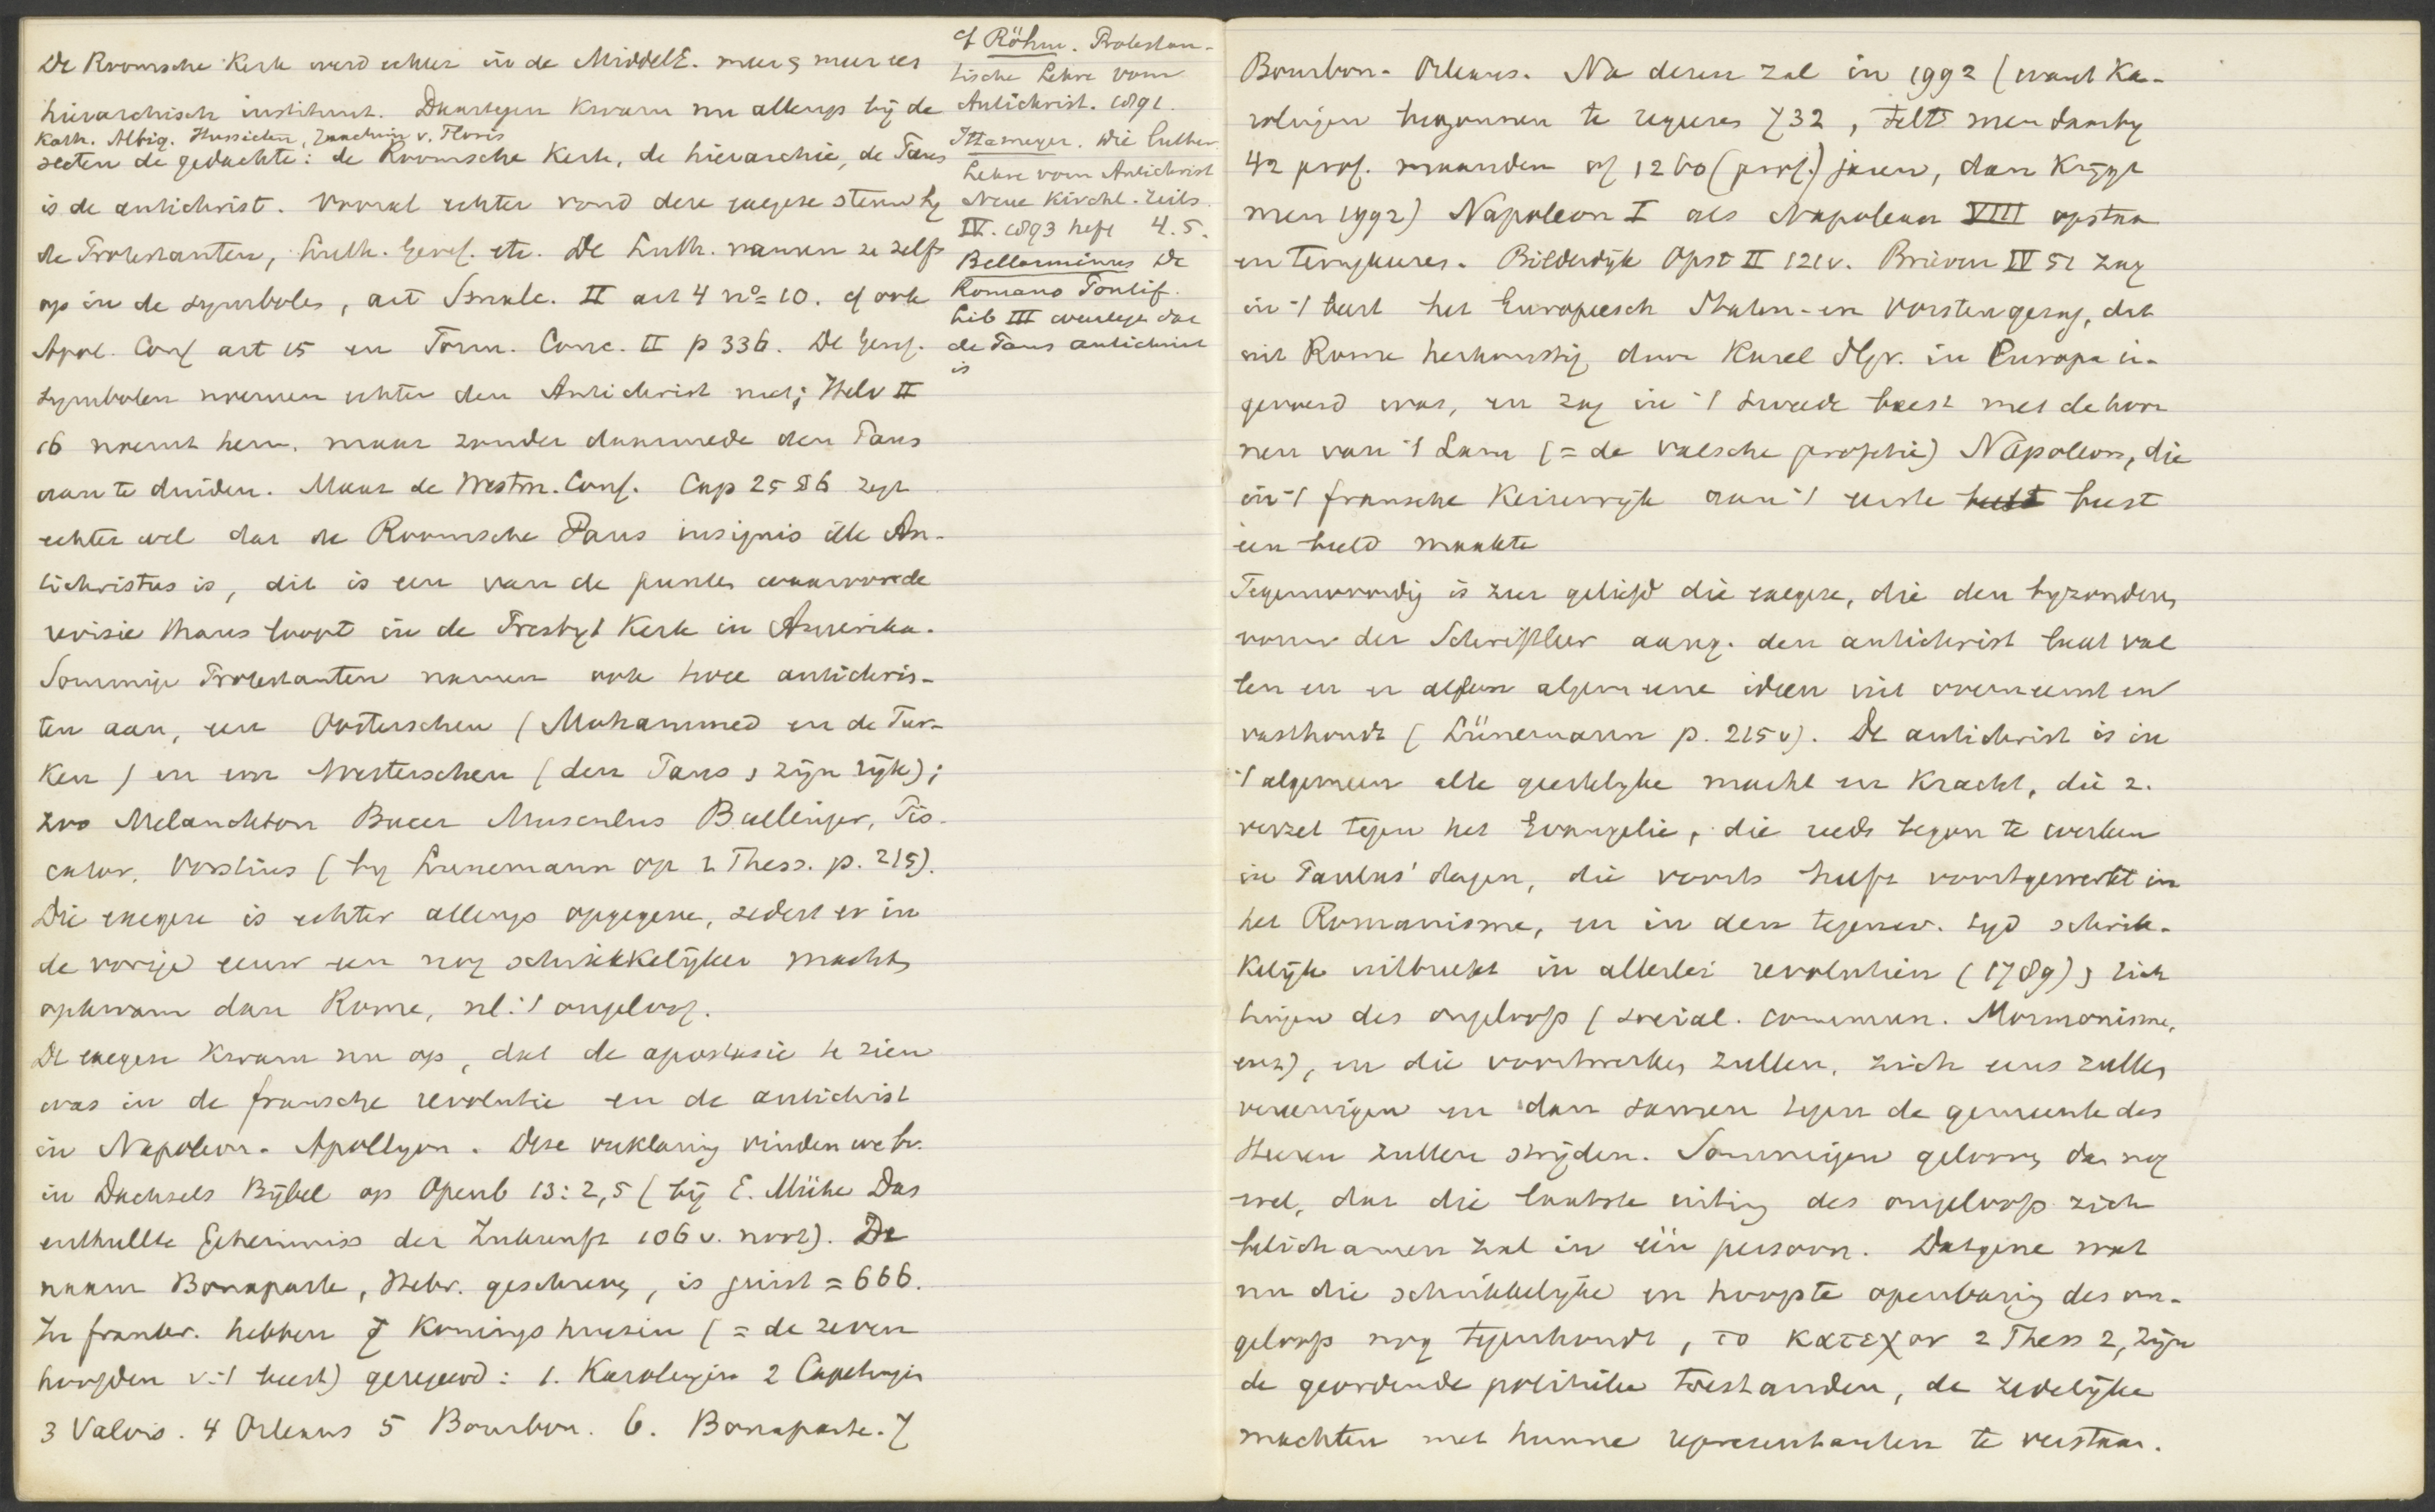 De Roomsche Kerk werd echter in de MiddelE. meer & meer een
hierarchisch instituut. Daartegen kwam nu allengs bij de
Kath. Albig. Hussieten, Joachim v. Floris
secten de gedachte: de Roomsche Kerk, de hierarchie, de Paus
is de antichrist. Vooral echter vond deze exegese steun bij
de Protestanten, Luth. Geref. etc. De Luth. namen ze zelfs
op in de symbolen, art Smalc. II art 4 no= 10. cf ook
Apol. Conf art 15 en Form. Conc. II p 336. De Geref.
symbolen noemen echter den Antichrist niet; Helv II
16 noemt hem. maar zonder daarmede den Paus
aan te duiden. Maar de Westm. Conf. Cap 25 § 6 zegt
echter wel dat de Roomsche Paus insignis ille An-
tichristus is, dit is een van de punten waarvoor de
revisie thans loopt in de Presbyt Kerk in Amerika.
Sommige Protestanten namen ook twee antichris-
ten aan, een Oosterschen (Mohammed en de Tur-
ken) en een Westerschen (den Paus & zijn rijk);
zoo Melanchton Bucer Musculus Bullinger, Pis-
cator, Vorstius (bij Lünemann op 2 Thess. p. 215).
Die exegese is echter allengs opgegeven, sedert er in
de vorige eeuw een nog schrikkelijker macht
opkwam dan Rome, nl. 't ongeloof.
De exegese kwam nu op, dat de apostasie te zien
was in de fransche revolutie en de antichrist
in Napoleon - Apollyon. Deze verklaring vinden we bv.
in Dächsels Bijbel op Openb 13:2,5 (bij E. Mühe Das
enthüllte Geheimniss der Zukunft 106 v. noot). De
naam Bonaparte, Hebr. geschreven, is juist = 666.
In frankr. hebben 7 Koningshuizen (= de zeven
hoofden v. 't beest) geregeerd: 1. Karolingen 2 Capetingen
3 Valois. 4 Orleans 5 Bourbon. 6. Bonaparte. 7
cf Röhm. Protestan-
tische Lehre vom
Antichrist. 1891.
Ittameyer. Die luther.
Lehre vom Antichrist
Neue Kirchl. Zeits.
IV. 1893 heft 4. 5.
Bellarminus De
Romano Pontif.
Lib III weerlegt dat
de Paus antichrist
is
Bourbon - Orleans. Na dezen zal in 1992 (want Ka-
rolingen begonnen te regeeren 732, telt men daarbij
42 prof. maanden of 1260 (prof.) jaren, dan krijgt
men 1992) Napoleon I als Napoleon VIII opstaan
en terugkeeren. Bilderdijk Opst II 121 v. Brieven IV 51 zag
in 't beest het Europeesch Staten- en Vorstengezag, dat
uit Rome herkomstig door Karel d. Gr. in Europa in-
gevoerd was, en zag in 't tweede beest met de hoor
nen van 't Lam (= de valsche profetie) Napoleon, die
in 't fransche Keizerrijk aan 't eerste beest
een beeld maakte
Tegenwoordig is zeer geliefd die exegese, die den bijzonderen
vorm der Schriftleer aang. den antichrist laat val
len en er alleen algemeene ideen uit overneemt en
vasthoudt (Lünemann p. 215 v). De antichrist is in
't algemeen alle geestelijke macht en kracht, die z.
verzet tegen het Evangelie, die reeds begon te werken
in Paulus' dagen, die voorts heeft voortgewerkt in
het Romanisme, en in den tegenw. tijd schrik-
kelijk uitbreekt in allerlei revolutien (1789) & rich
tingen des ongeloofs (social. commun. Mormonisme,
enz), en die voortwerken zullen, zich eens zullen
vereenigen en dan samen tegen de gemeente des
Heeren zullen strijden. Sommigen gelooven dan nog
wel, dat die laatste uiting des ongeloofs zich
belichamen zal in één persoon. Datgene wat
nu die schrikkelijke en hoogste openbaring des on-
geloofs nog tegenhoudt, το κατεχον 2 Thess 2, zijn
de geordende politieke toestanden, de zedelijke
machten met hunne representanten te verstaan.